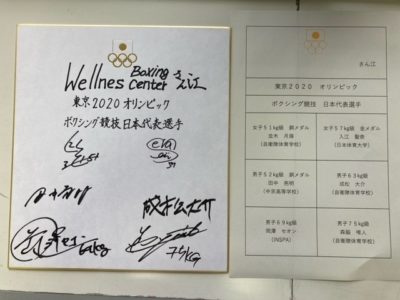 Wellnes Boxing Center ぎん江
東京2020オリンピック
ボクシング競技日本代表選手
成松大介
75kg
ぎん江
東京2020 オリンピック
ボクシング競技 日本代表選手
女子51kg級 銅メダル
並木 月海
(自衛隊体育学校)
女子57kg級 金メダル
入江 聖奈
(日本体育大学)
男子52kg級 銅メダル
田中 亮明
(中京高等学校)
男子63kg級
成松 大介
(自衛隊体育学校)
男子69kg級
岡澤 セオン
(INSPA)
男子75kg級
森脇 唯人
(自衛隊体育学校)